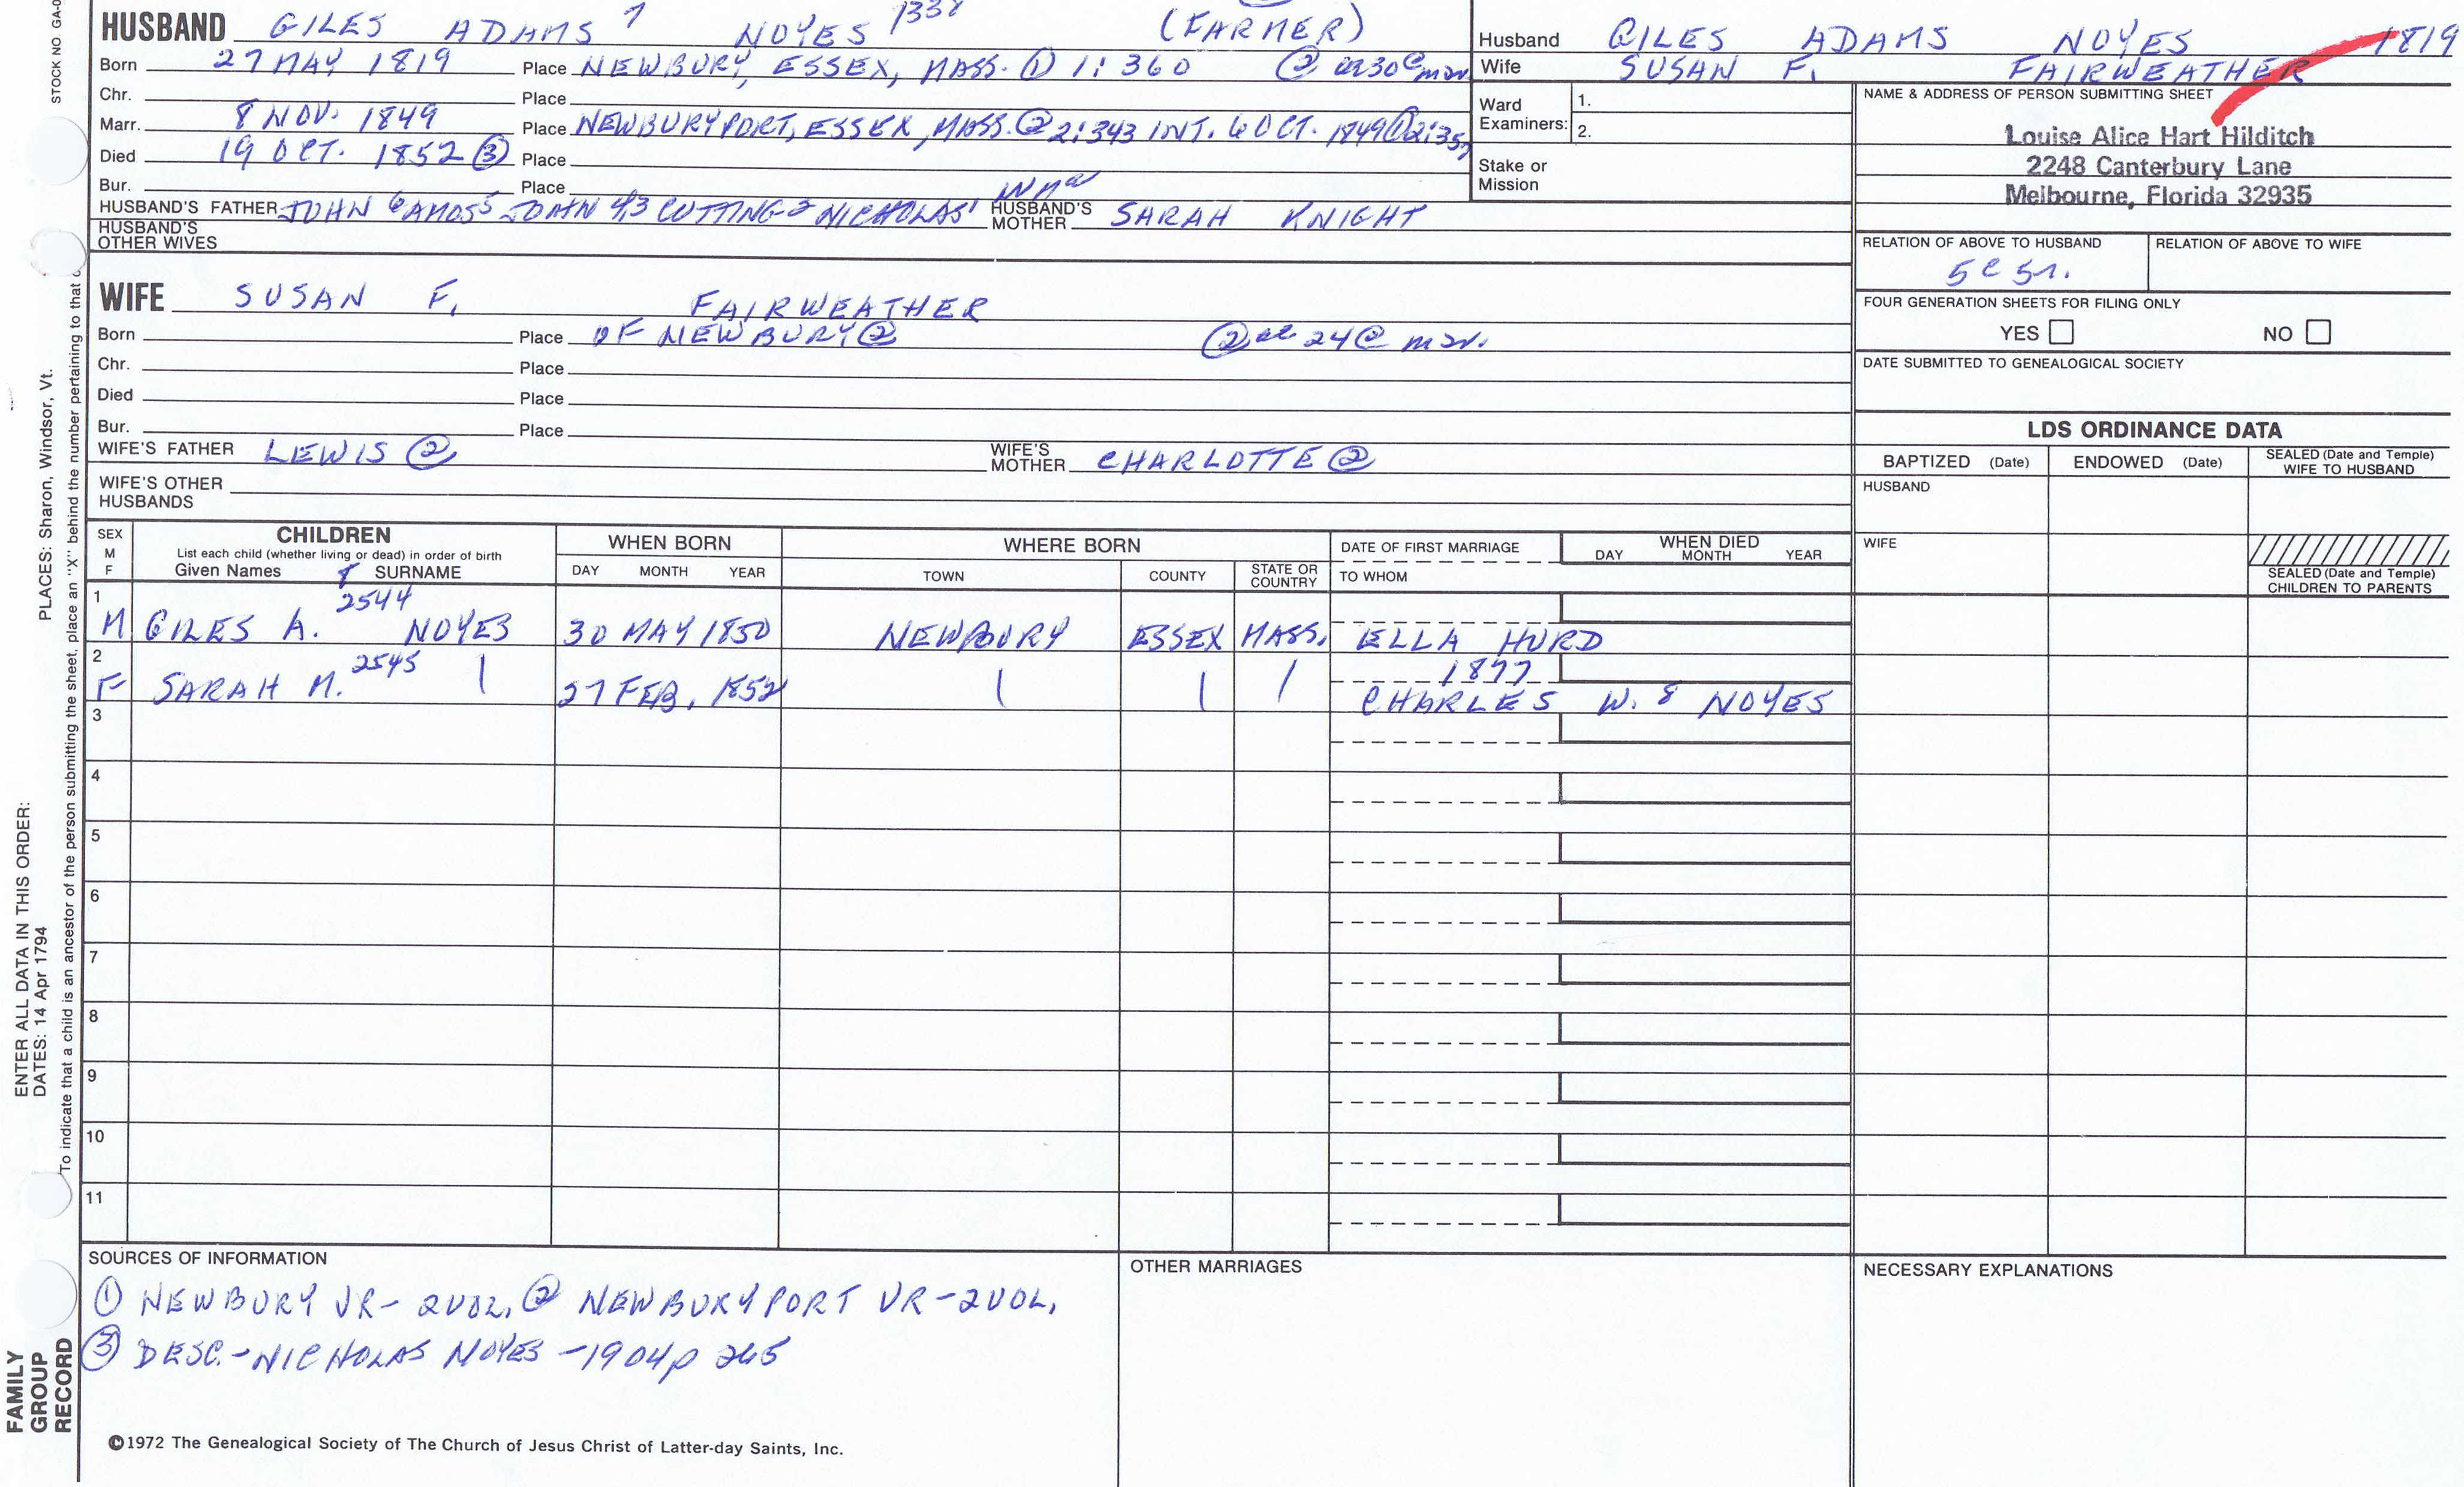 STOCK NO. GA-0
HUSBAND GILES ADAMS 7 NOYES 1338 (FARMER)
Born 27 MAY 1819 Place NEWBURY, ESSEX, MASS. ① 1:360 ② ae 30 @ mar
Chr. Place
Marr. 8 NOV. 1849 Place NEWBURYPORT, ESSEX, MASS. ② 2:343 INT. 6 OCT. 1849 ① 2:357
Died 19 OCT. 1852 ③ Place
Bur. Place
HUSBAND'S FATHER JOHN 6 AMOS 5 JOHN 4,3 CUTTING 2 NICHOLAS 1 HUSBAND'S MOTHER SARAH KNIGHT
HUSBAND'S OTHER WIVES
WIFE SUSAN F. FAIRWEATHER
Born Place OF NEWBURY ② ② ae 24 @ mar.
Chr. Place
Died Place
Bur. Place
WIFE'S FATHER LEWIS ② WIFE'S MOTHER CHARLOTTE ②
WIFE'S OTHER HUSBANDS
Husband GILES ADAMS NOYES 1819
Wife SUSAN F. FAIRWEATHER
Ward Examiners: 1.
2.
Stake or Mission
NAME & ADDRESS OF PERSON SUBMITTING SHEET
Louise Alice Hart Hilditch
2248 Canterbury Lane
Melbourne, Florida 32935
RELATION OF ABOVE TO HUSBAND RELATION OF ABOVE TO WIFE
5c 5r.
FOUR GENERATION SHEETS FOR FILING ONLY
YES NO
DATE SUBMITTED TO GENEALOGICAL SOCIETY
LDS ORDINANCE DATA
BAPTIZED (Date) ENDOWED (Date) SEALED (Date and Temple) WIFE TO HUSBAND
HUSBAND
WIFE
SEALED (Date and Temple) CHILDREN TO PARENTS
SEX M F CHILDREN WHEN BORN WHERE BORN DATE OF FIRST MARRIAGE WHEN DIED
List each child (whether living or dead) in order of birth
Given Names 8 SURNAME DAY MONTH YEAR TOWN COUNTY STATE OR COUNTRY TO WHOM DAY MONTH YEAR
1 M GILES A. 2544 NOYES 30 MAY 1850 NEWBURY ESSEX MASS. ELLA HURD
2 F SARAH M. 2545 | 27 FEB. 1852 | | | 1877
CHARLES W. 8 NOYES
3
4
5
6
7
8
9
10
11
SOURCES OF INFORMATION
① NEWBURY VR- 2VOL. ② NEWBURYPORT VR-2VOL.
③ DESC.-NICHOLAS NOYES -1904 p 265
OTHER MARRIAGES
NECESSARY EXPLANATIONS
©1972 The Genealogical Society of The Church of Jesus Christ of Latter-day Saints, Inc.
ENTER ALL DATA IN THIS ORDER:
DATES: 14 Apr 1794 PLACES: Sharon, Windsor, Vt.
To indicate that a child is an ancestor of the person submitting the sheet, place an "X" behind the number pertaining to that
FAMILY
GROUP
RECORD